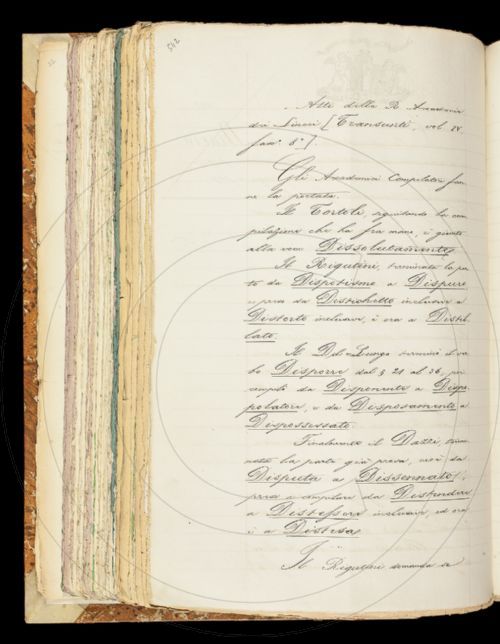 542
Atti della R. Accademia
dei Lincei [Transunti, vol. IV.
fasc.° 8°].
Gli Accademici Compilatori fan-
no la portata.
Il Tortoli, seguitando la com
pilazione che ha fra mano, è giunto
alla voce Dissolutamente,
Il Rigutini, terminata la par
te da Dispotismo a Dispure
e presa da Distichetto inclusive a
Distorto inclusive, è ora a Distil
lato.
Il Del Lungo terminò il ver
bo Disporre dal § 21 al 36, poi
compilò da Disponente a
e da Disposamento a
Dispossessato.
Finalmente il Dazzi, termi
nata la parte già presa, cioè da
Disputa a Dissennato,
prese a compilare da Distendere
a Distessere inclusive, ed ora
è a Distesa
Il Rigutini domanda se